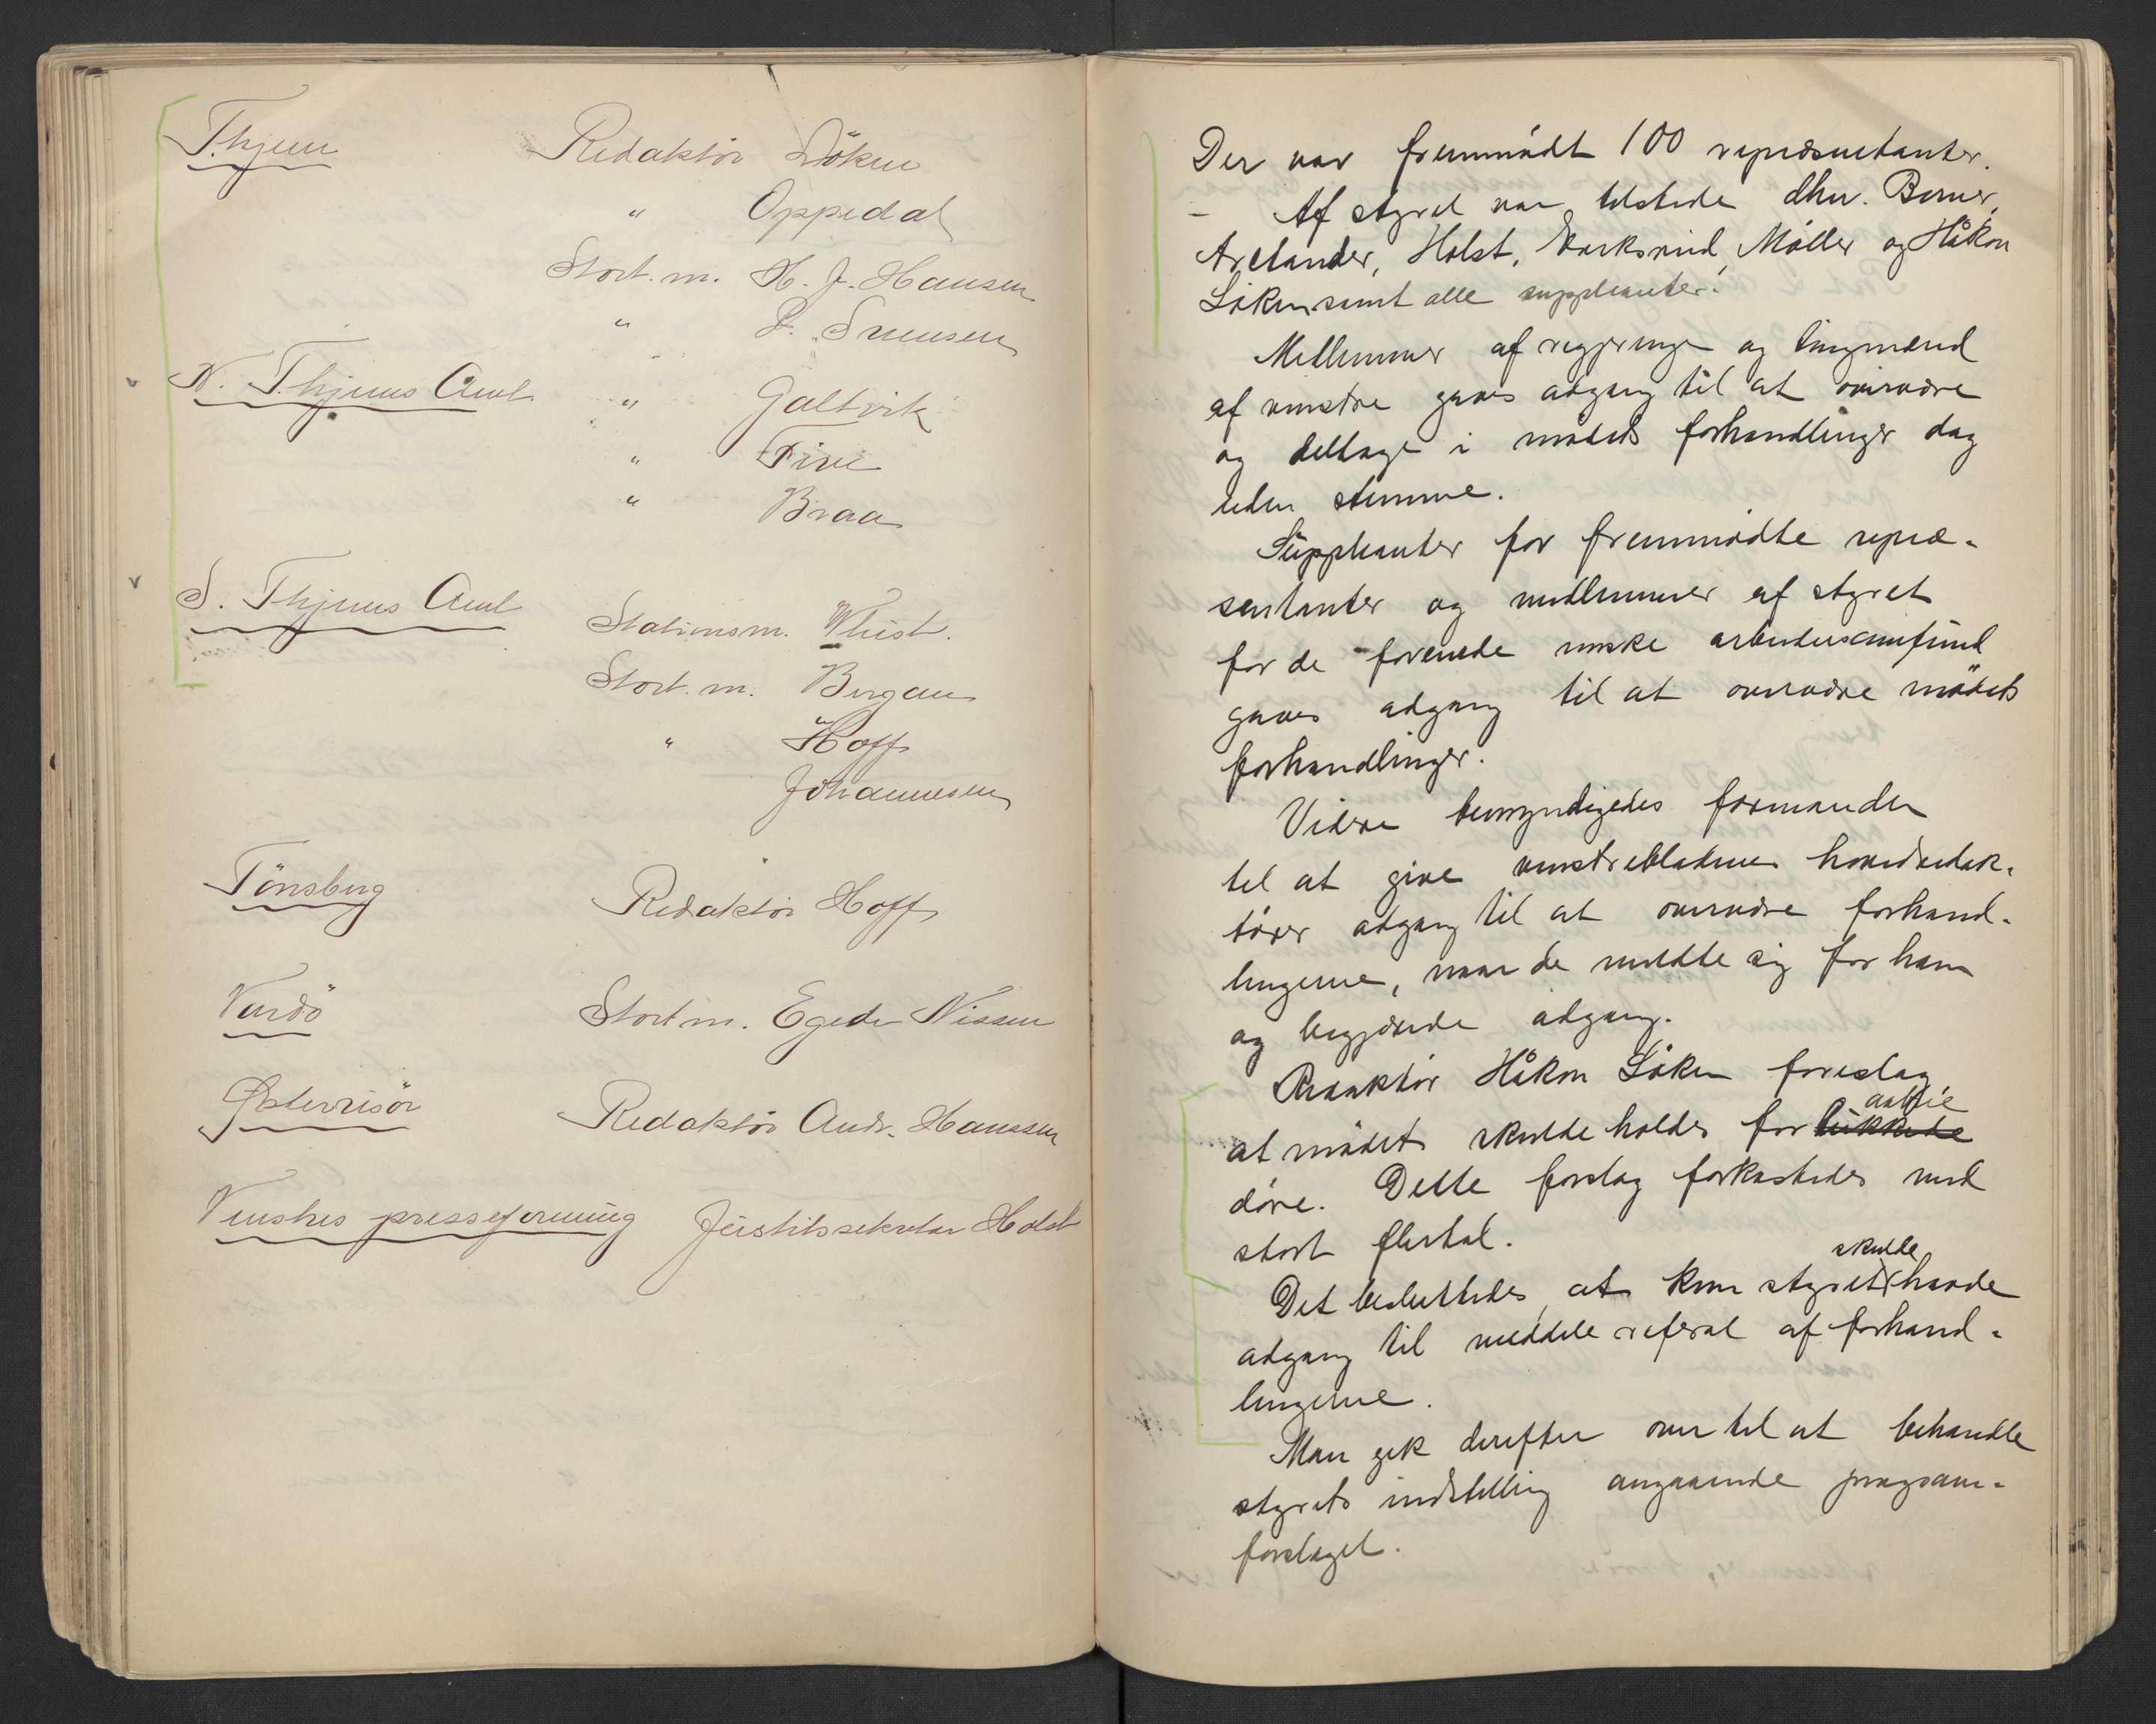 Thjem Redaktör Löken
" Oppedal
Stort. m. H. J. Hansen
" L. Svensen
N. Thjems Amt " Galtvik
" Five
" Braa
S. Thjems Amt Stationsm. Whist.
Stort. m. Bergan
" Hoff
Johannesen
Tönsberg Redaktör Hoff
Vardö Stort m. Egede Nissen
Österrisör Redaktör Andr. Hanssen
Venstres presseforening Justitssekretær Holst
Der var fremmødt 100 repræsentanter.
- Af styret var tilstede dhrr. Berner,
Arctander, Holst, Møller og Håkon
Löken samt alle suppleanter.
Medlemmer af regjeringen og tingmænd
af venstre gaves adgang til at overvære
og deltage i mødets forhandlinger dog
uden stemme.
Suppleanter for fremmødte repræ-
sentanter og medlemmer af styret
for de forenede norske arbeidersamfund
gaves adgang til at overvære mödets
forhandlinger.
Videre bemyndigedes formanden
til at give venstrebladenes hovedredak-
törer adgang til at overvære forhand-
lingerne, naar de meldte sig for ham
og begjærede adgang.
Redaktör Håkon Löken foreslog,
at mödet skulde holdes for aabne lukkede
döre. Dette forslag forkastedes med
stort flertal.
Det besluttedes, at kun styret skulde havde
adgang til meddele referat af forhand-
lingerne.
Man gik derefter over til at behandle
styrets indstilling angaaende program-
forslaget.